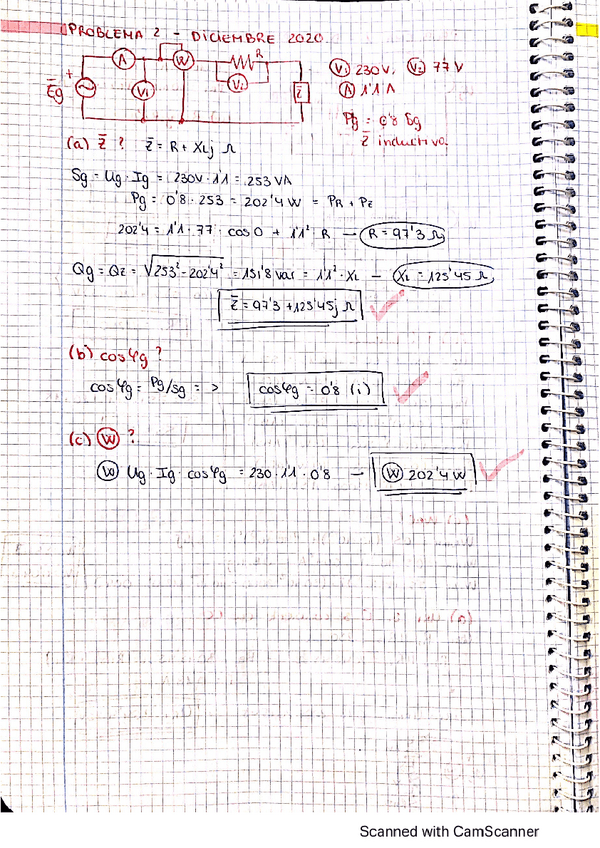 PROBLEMA 2 - DICIEMBRE 2020.
A
W
R
V1
V2
Z̄
+
Ēg
V1 230V, V2 77V
A 1'1 A
Pg = 0'8 Sg
Z̄ inductiva.
(a) Z̄ ? Z̄ = R + XLj Ω
Sg = Ug · Ig = 230V · 1'1 = 253 VA
Pg = 0'8 · 253 = 202'4 W = PR + Pz
202'4 = 1'1 · 77 · cos 0 + 1'1² · R — R = 97'3 Ω
Qg = Qz = √253² - 202'4² = 151'8 var = 1'1² · XL — XL = 125'45 Ω
Z̄ = 97'3 + 125'45j Ω
(b) cosφg ?
cosφg = Pg/Sg = > cosφg = 0'8 (i)
(c) W ?
W Ug · Ig · cosφg = 230 · 1'1 · 0'8 — W 202'4 W
Scanned with CamScanner